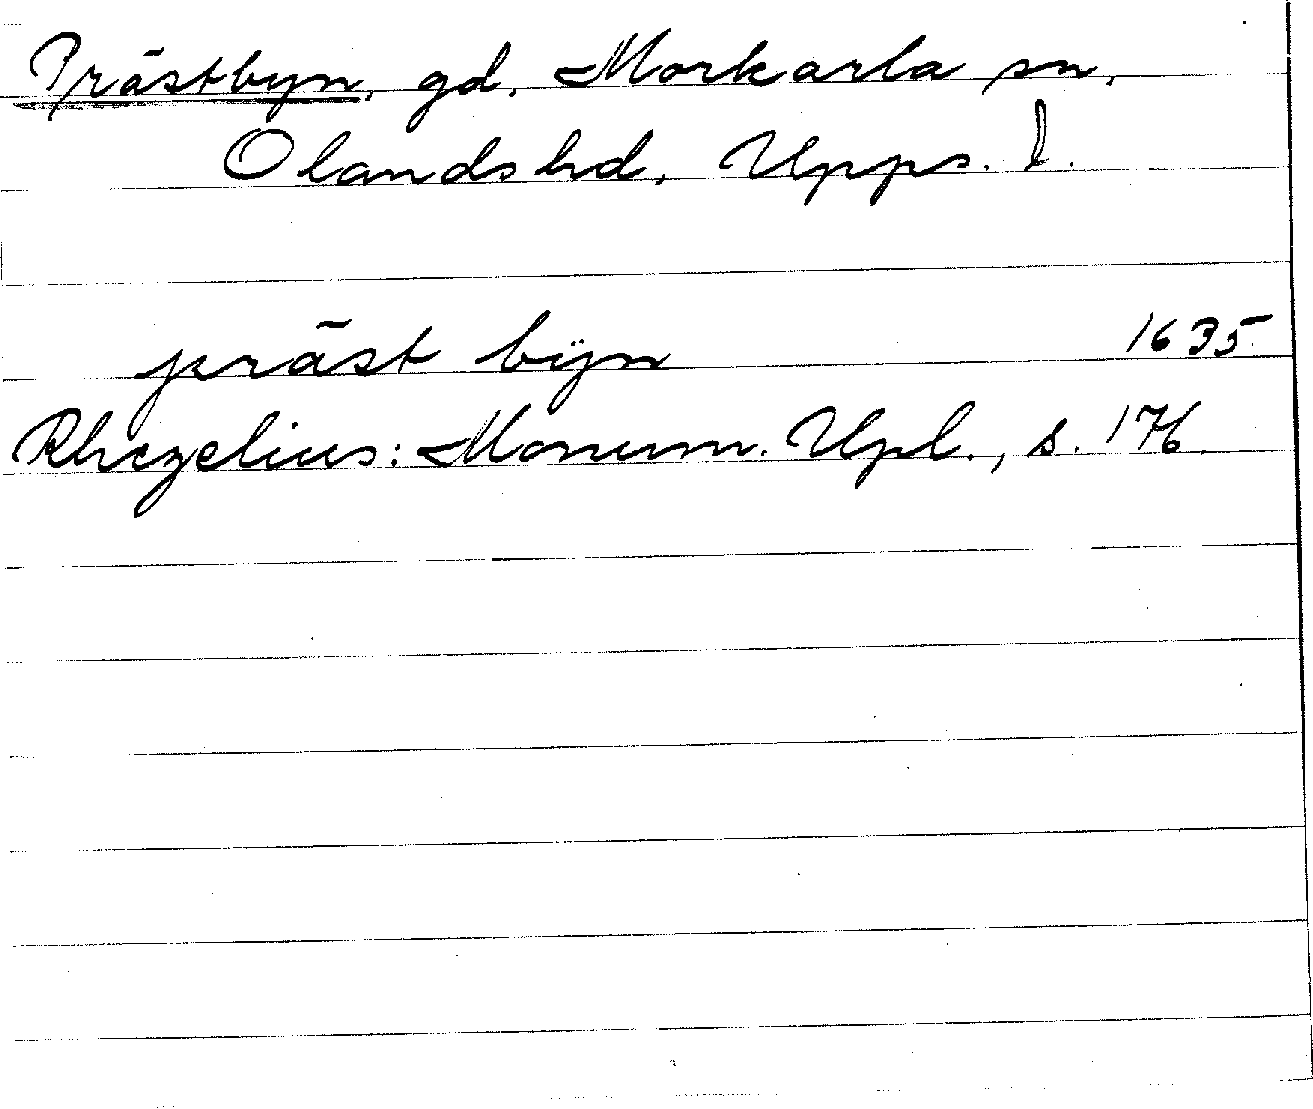 Prästbyn, gd, Morkarla sn,
Olands hd, Upps. l.
präst bÿn 1635
Rhezelius: Monum. Upl., s. 176.